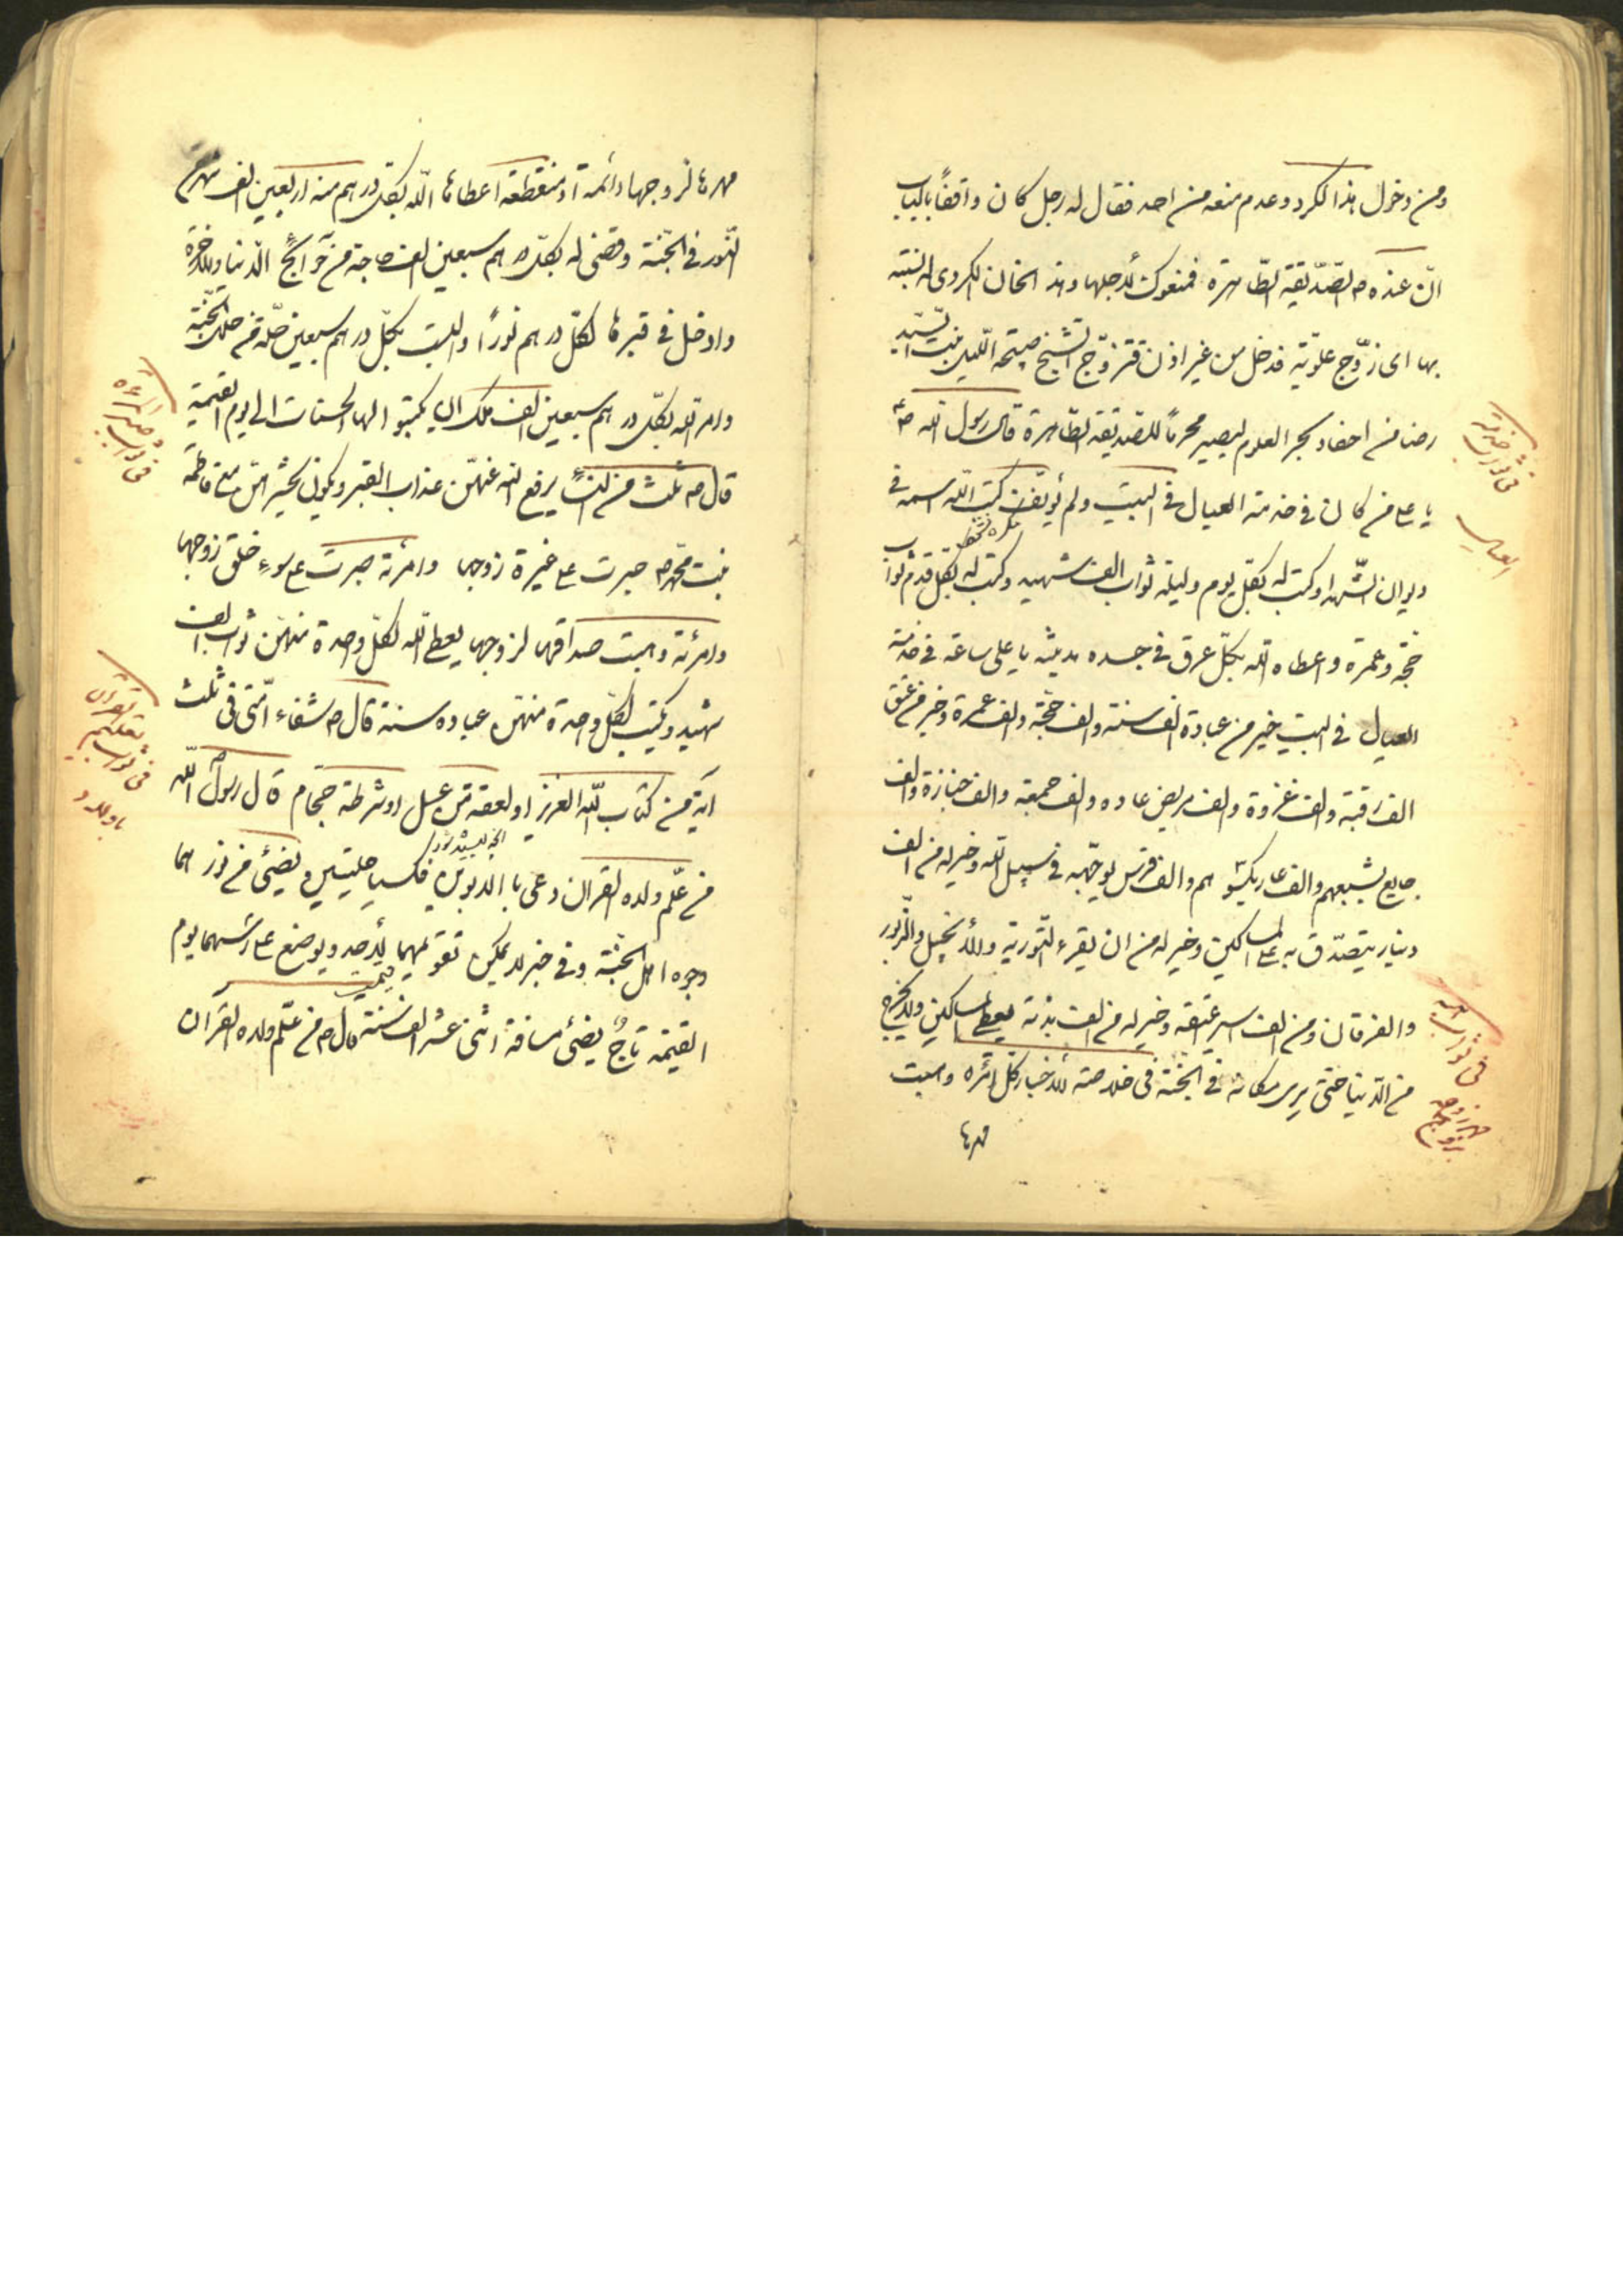 ومن دخول هذا الكرد وعدم منعه من احد فقال له رجل كان واقفاً بالباب
انّ عنده ص الصّدّيقة الطّاهرة فمنعوك لأجلها وهذا الخان الكردى له نسبته
بها اى زوّج علويّة فدخل من غير اذن فتزوّج الشيخ صبيحة اللّيل بنت السّيّد
رضا من احفاد بحر العلوم ليصير محرماً للصّديقة الطّاهرة قال رسول الله ص
يا على من كان فى خدمة العيال فى البيت ولم يأنف كتب الله اسمه فى
ديوان الشّهداء وكتب له بكلّ يوم وليلة ثواب الف شهيد وكتب له بكلّ قدم ثواب
حجّة وعمرة واعطاه الله بكلّ عرق فى جسده مدينة يا على ساعة فى خدمة
العيال فى البيت خير من عبادة الف سنة والف حجّة والف عمرة وخير من عتق
الف رقبة والف غزوة والف مريض عاده والف جمعة والف جنازة والف
جايع يشبعهم والف عار يكسوهم والف فرس يوجّهه فى سبيل الله وخير له من الف
دينار يتصدّق به على المساكين وخير له من ان يقرء التّورية والانجيل والزّبور
والفرقان ومن الف اسير عتقه وخير له من الف بدنة يعطى للمساكين ولا يخرج
من الدّنيا حتّى يرى مكانه فى الجنّة فى خلاصة الأخبار كلّ امرئة وهبت
مهرها
فى ثواب خدمة
العيال
فى ثواب هبة
مهر الزوجة
مهرها لزوجها دائمة او منقطعة اعطاها اللّه بكلّ درهم منه اربعين الف شهر من
النّور فى الجنّة وقضى له بكلّ درهم سبعين الف حاجة من حوائج الدّنيا والآخرة
وادخل فى قبرها لكلّ درهم نوراً والبست بكلّ درهم سبعين حلّة من حلل الجنّة
وامر الله بكلّ درهم سبعين الف ملك ان يكتبوا لها الحسنات الى يوم القيمة
قال ص ثلث من النساء يرفع الله عنهنّ عذاب القبر ويكون محشرهنّ مع فاطمة
بنت محمّد ص صبرت على غيرة زوجها وامرئة صبرت على سوء خلق زوجها
وامرئة وهبت صداقها لزوجها يعطى الله لكلّ واحدة منهنّ ثواب الف
شهيد ويكتب لكلّ واحدة منهنّ عبادة سنة قال ص شفاء امّتى فى ثلث
اية من كتاب اللّه العزيز او لعقة من عسل او شرطة حجّام قال رسول اللّه
من علّم ولده القران دعى بالابوين فكسيا حلّتين يضيئ من نورهما
وجوه اهل الجنّة وفى خبر لا يمكن تقويمهما لأحد ويوضع على رأسهما يوم
القيمة تاجٌ يضيئ مسافة اثنى عشر الف سنة قال ص من علّم ولده القرآن
فى ثواب صبر المرءة
فى ثواب تعليم القران
باولاد